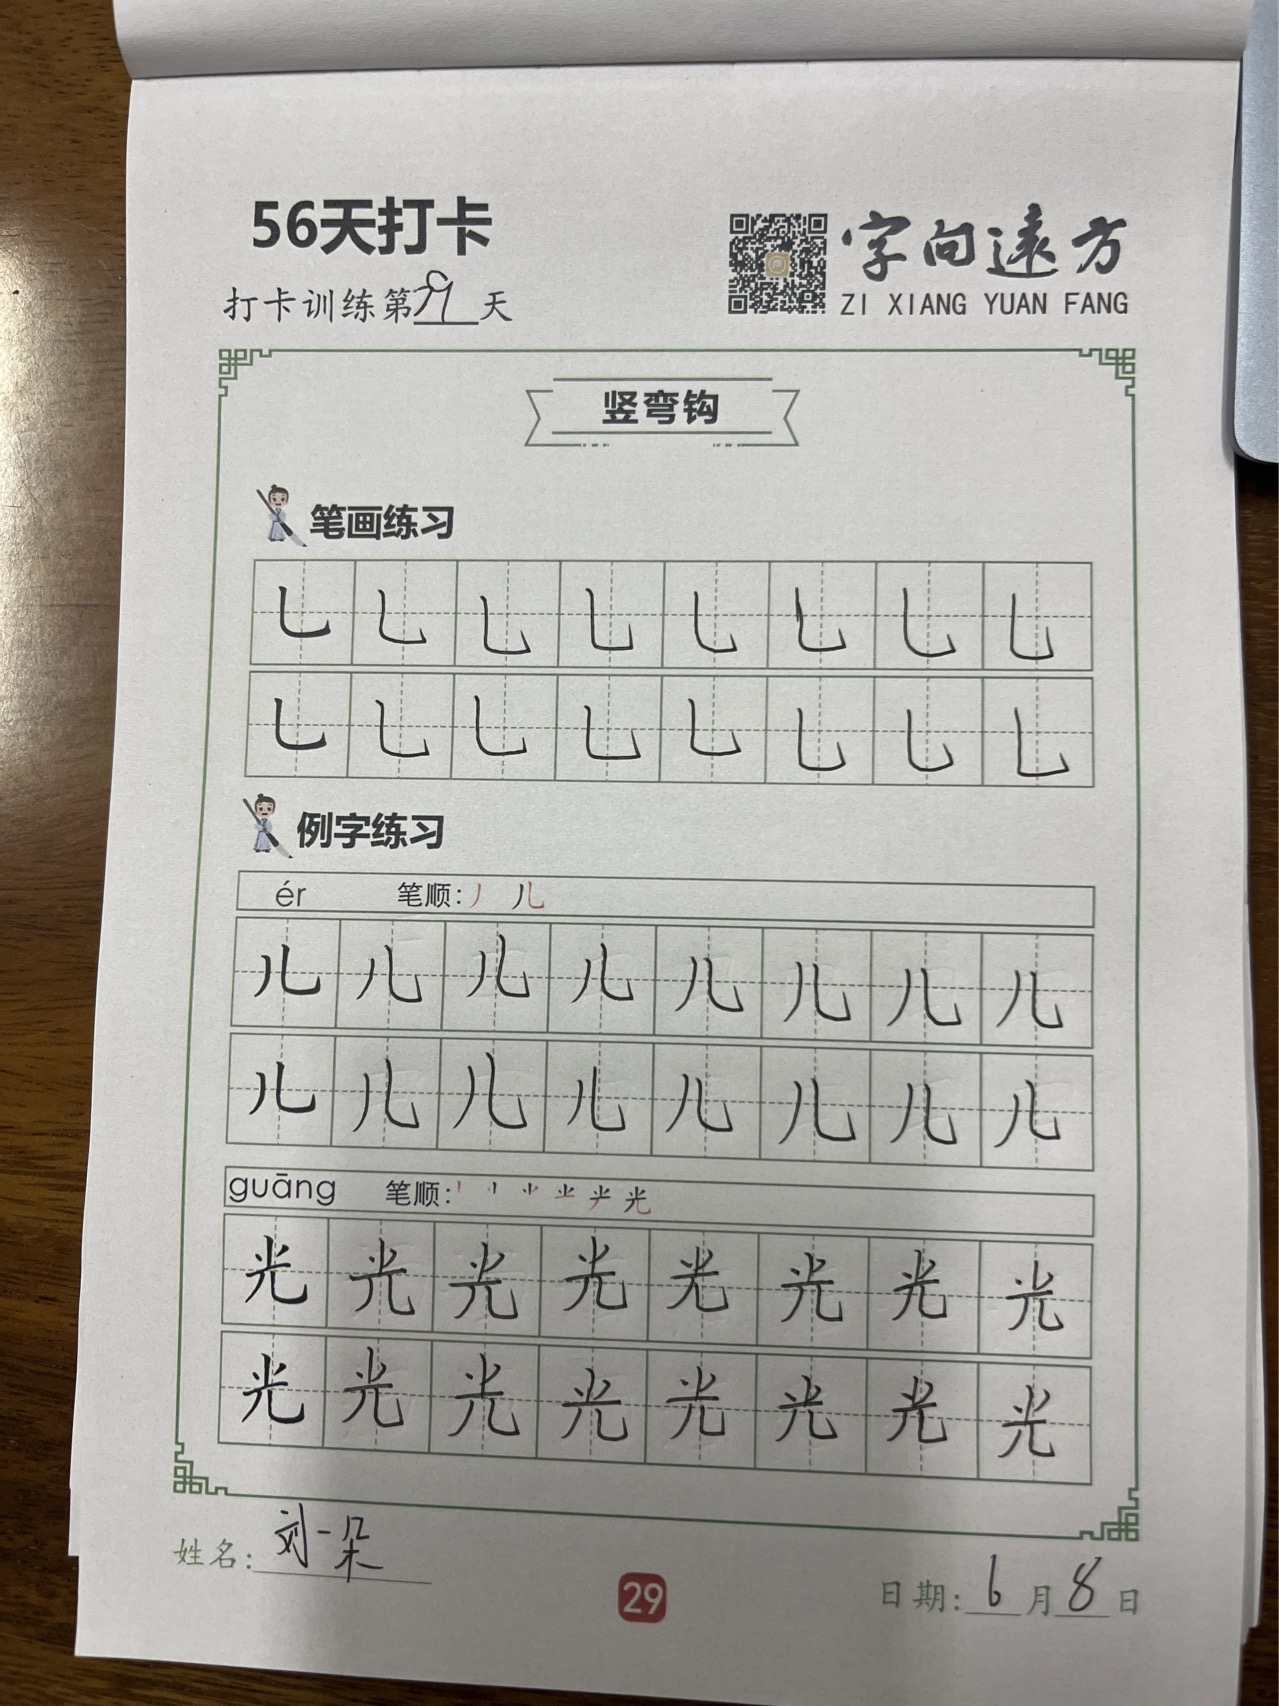 56天打卡
字向遠方
打卡训练第 天
ZI XIANG YUAN FANG
竖弯钩
笔画练习
乚 乚 乚 乚 乚 乚 乚 乚
乚 乚 乚 乚 乚 乚 乚 乚
例字练习
ér 笔顺: 丿 儿
儿 儿 儿 儿 儿 儿 儿 儿
儿 儿 儿 儿 儿 儿 儿 儿
guāng 笔顺: 光
光 光 光 光 光 光 光 光
光 光 光 光 光 光 光 光
姓名: 刘一朵
29
日期: 6 月 8 日